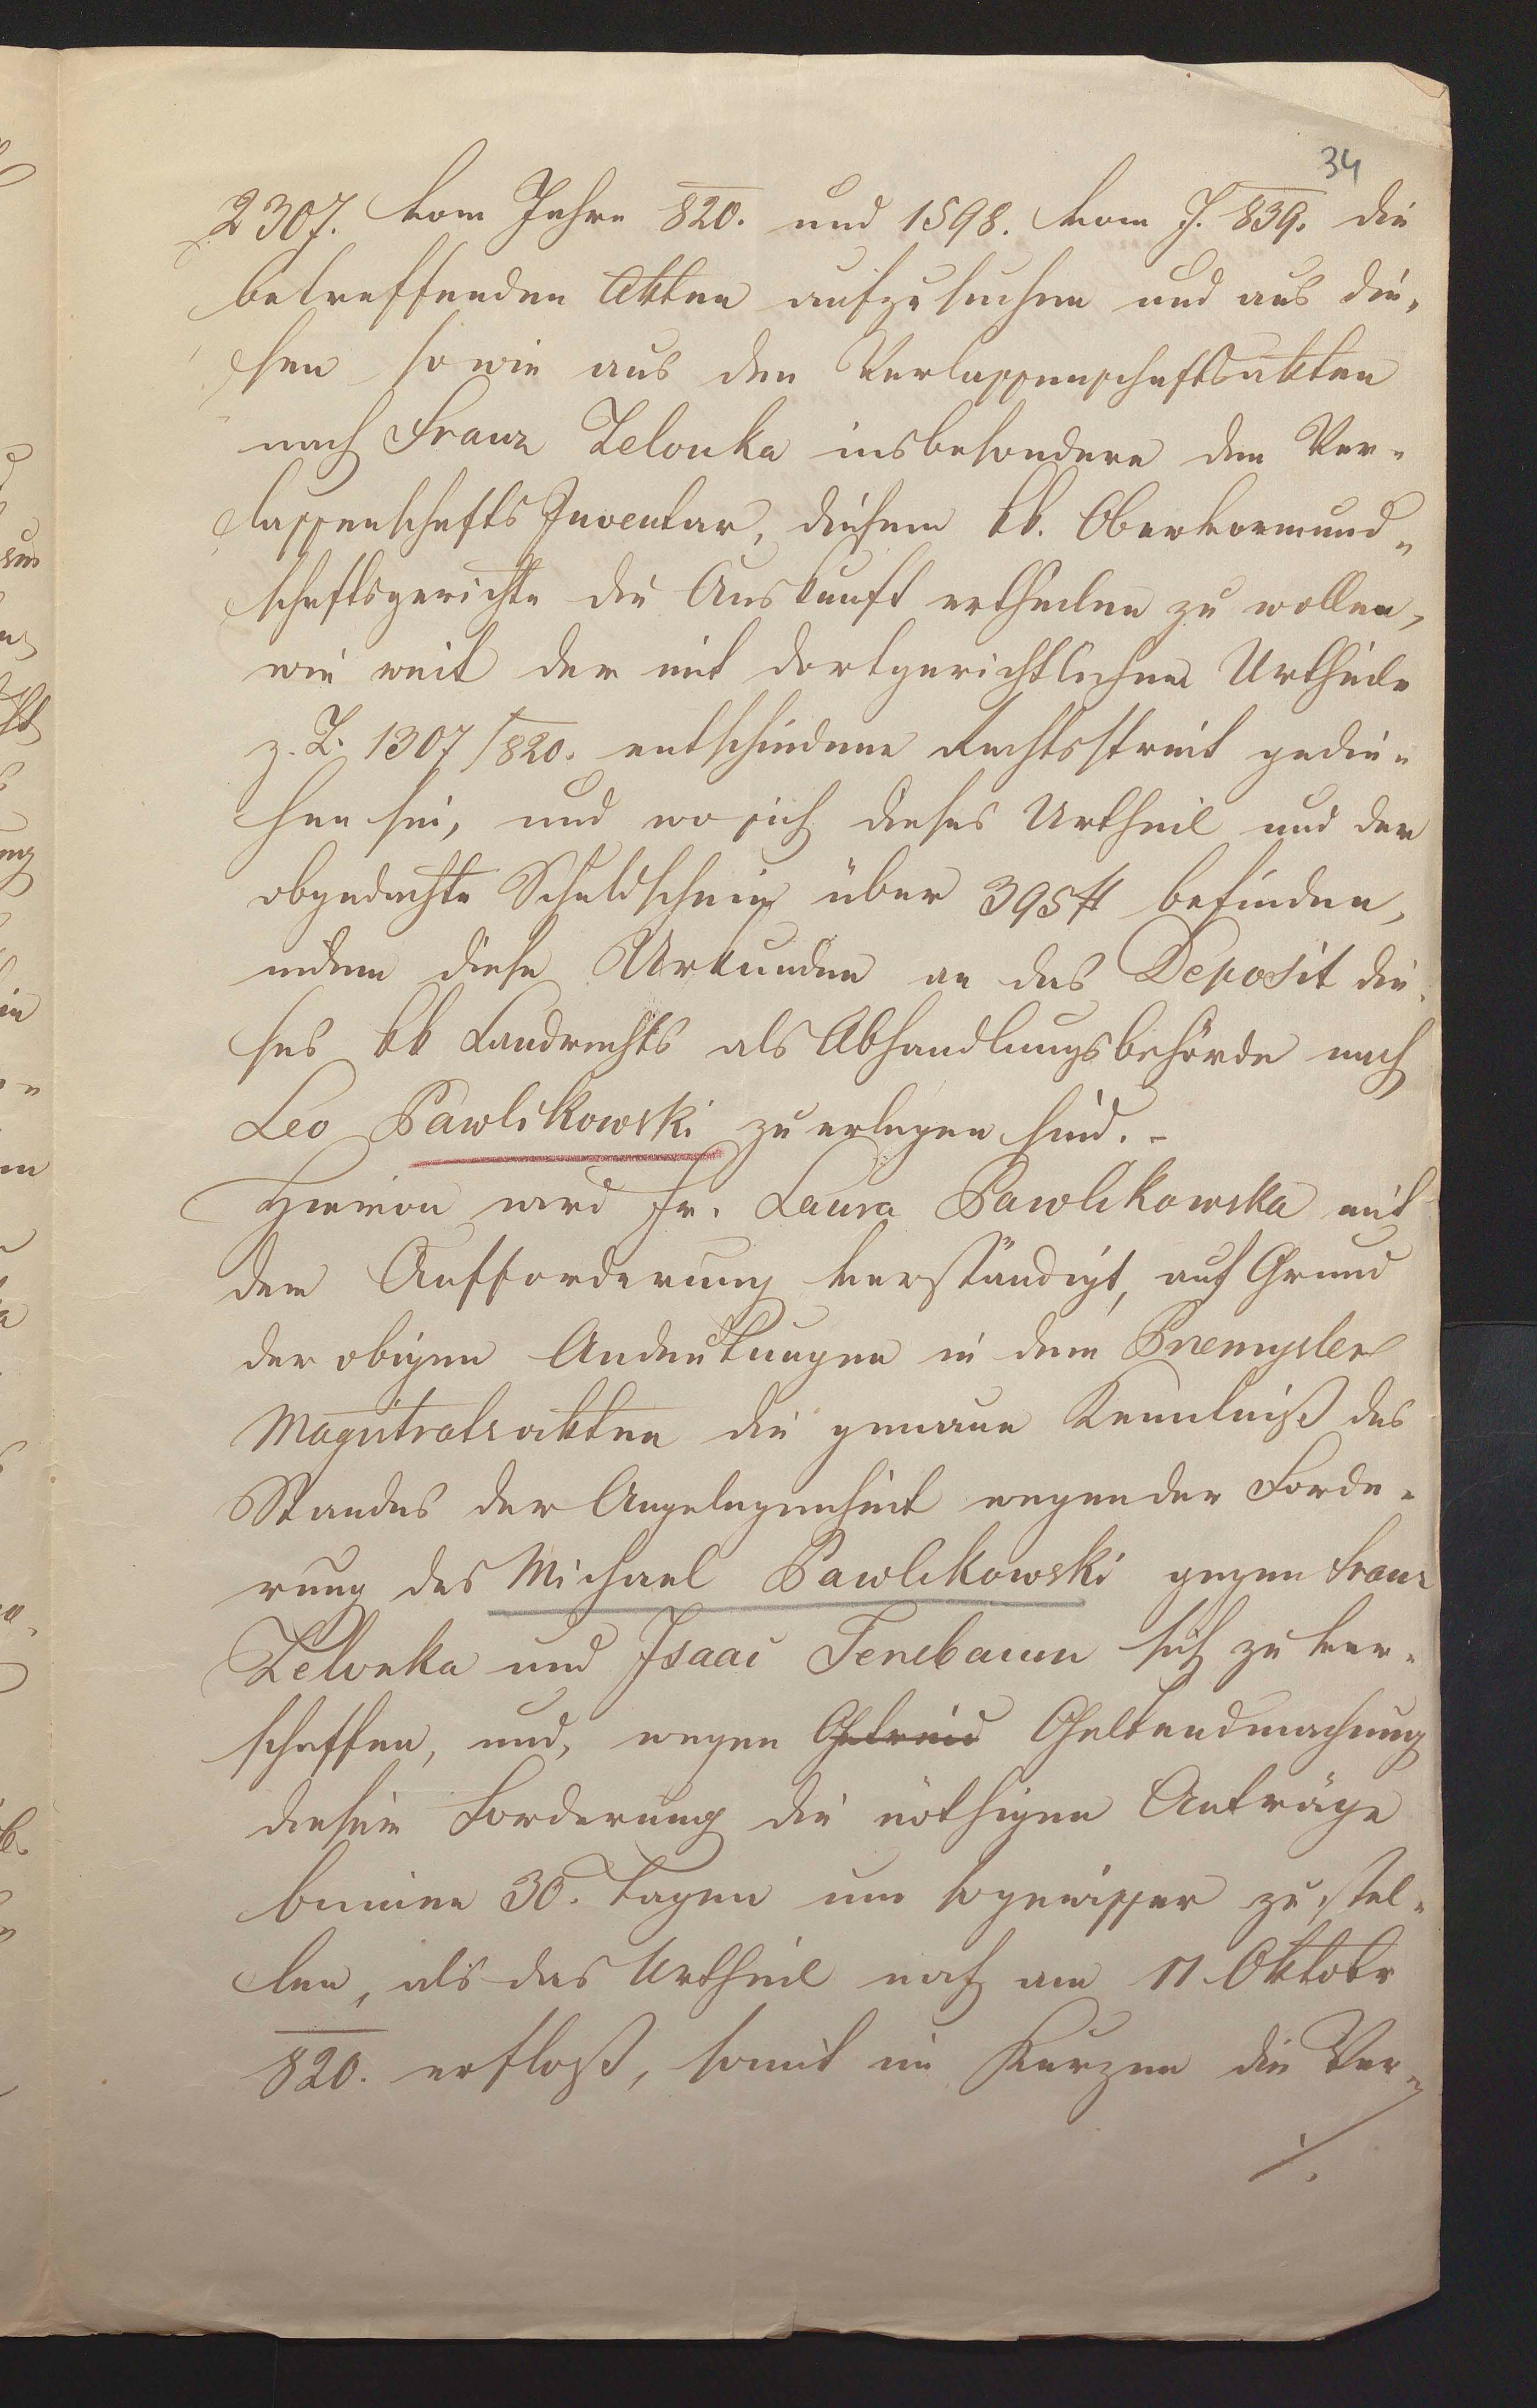 34
2307. vom Jahre 820. und 1598. vom J. 839. die
betreffenden Akten aufzusuchen und aus die-
sen sowie aus den Verlassenschaftsakten
nach Franz Zelonka insbesondere dem Ver-
lassenschafts Inventar, diesem kk. Obervormund-
schaftsgerichte die Auskunft ertheilen zu wollen,
wie weit der mit dortgerichtlichem Urtheile
z. Z. 1307/820. entschiedene Rechtsstreit gedie-
hen sei, und wo sich dieses Urtheil und der
obgedachte Schuldschein über 395 f befinden,
indem diese Urkunden an das Deposit die-
ses kk Landrechts als Abhandlungsbehörde nach
Leo Pawlikowski zu erlegen sind. -
Hievon wird Fr. Laura Pawlikowska mit
der Aufforderung verständigt, auf Grund
der obigen Andeutungen in den Przemysler
Magistratsakten die genaue Kenntniß des
Standes der Angelegenheit wegen der Forde-
rung des Michael Pawlikowski gegen Franz
Zelonka und Isaac Tenebaum sich zu ver-
schaffen, und, wegen Getreid Geltendmachung
dieser Forderung die nöthigen Anträge
binnen 30. Tagen um so gewisser zu stel-
len, als das Urtheil noch am 11 Oktobr
820. erfloß, somit in Kurzem die Ver-
./.